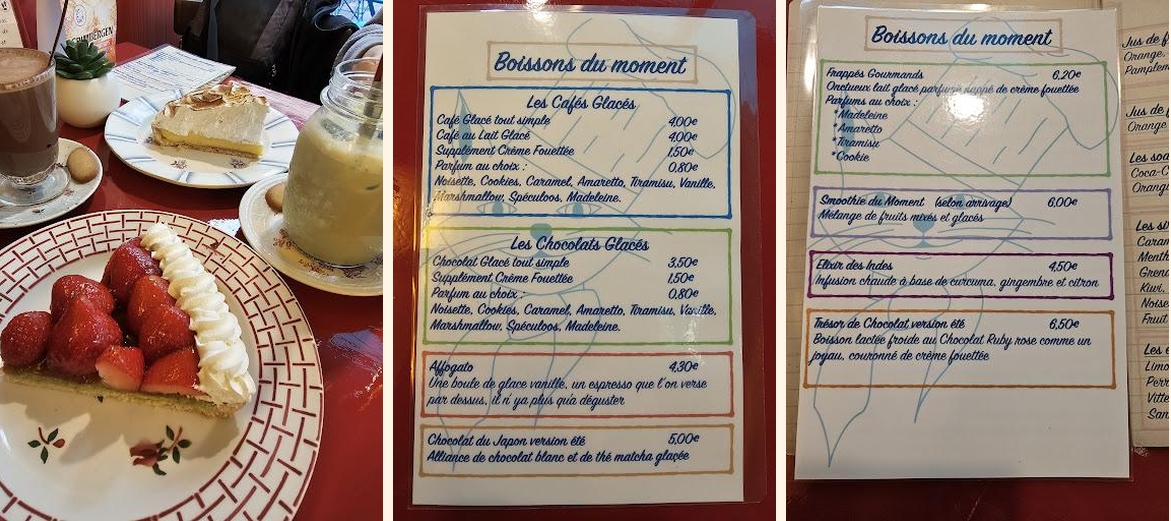 GRIMBERGEN
Boissons du moment
Les Cafés Glacés
Café Glacé tout simple 4,00€
Café au Lait Glacé 4,00€
Supplément Crème Fouettée 1,50€
Parfum au choix : 0,80€
Noisette, Cookies, Caramel, Amaretto, Tiramisu, Vanille,
Marshmallow, Spéculoos, Madeleine.
Les Chocolats Glacés
Chocolat Glacé tout simple 3,50€
Supplément Crème Fouettée 1,50€
Parfum au choix : 0,80€
Noisette, Cookies, Caramel, Amaretto, Tiramisu, Vanille,
Marshmallow, Spéculoos, Madeleine.
Affogato 4,30€
Une boule de glace vanille, un espresso que l'on verse
par dessus, il n'ya plus qu'à déguster
Chocolat du Japon version été 5,00€
Alliance de chocolat blanc et de thé matcha glaçée
Boissons du moment
Frappés Gourmands 6,20€
Onctueux lait glacé parfumé nappé de crème fouettée
Parfums au choix :
*Madeleine
*Amaretto
*Tiramisu
*Cookie
Smoothie du Moment (selon arrivage) 6,00€
Mélange de fruits mixés et glacés
Elixir des Indes 4,50€
Infusion chaude à base de curcuma, gingembre et citron
Trésor de Chocolat version été 6,50€
Boisson lactée froide au Chocolat Ruby rose comme un
joyau, couronné de crème fouettée
Jus de f
Orange,
Pamplem
Jus de
Orange
Les so
Coca-C
Orang
Les si
Caram
Menth
Grena
Kiwi,
Noise
Fruit
Les e
Limo
Perr
Vitte
San